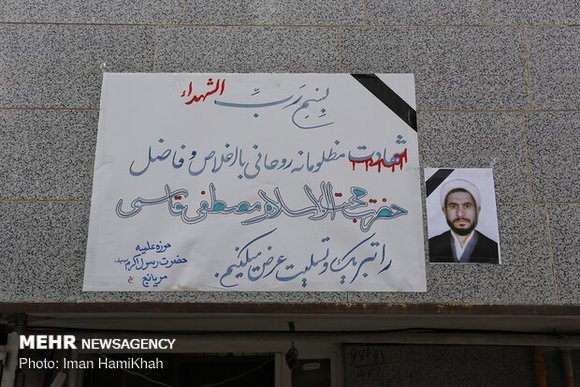 بسم رب الشهداء
شهادت مظلومانه روحانی با اخلاص و فاضل
حضرت حجت الاسلام مصطفی قاسمی
را تبریک و تسلیت عرض میکنیم.
حوزه علمیه
حضرت رسول اکرم
مریانج
MEHR NEWSAGENCY
Photo: Iman HamiKhah